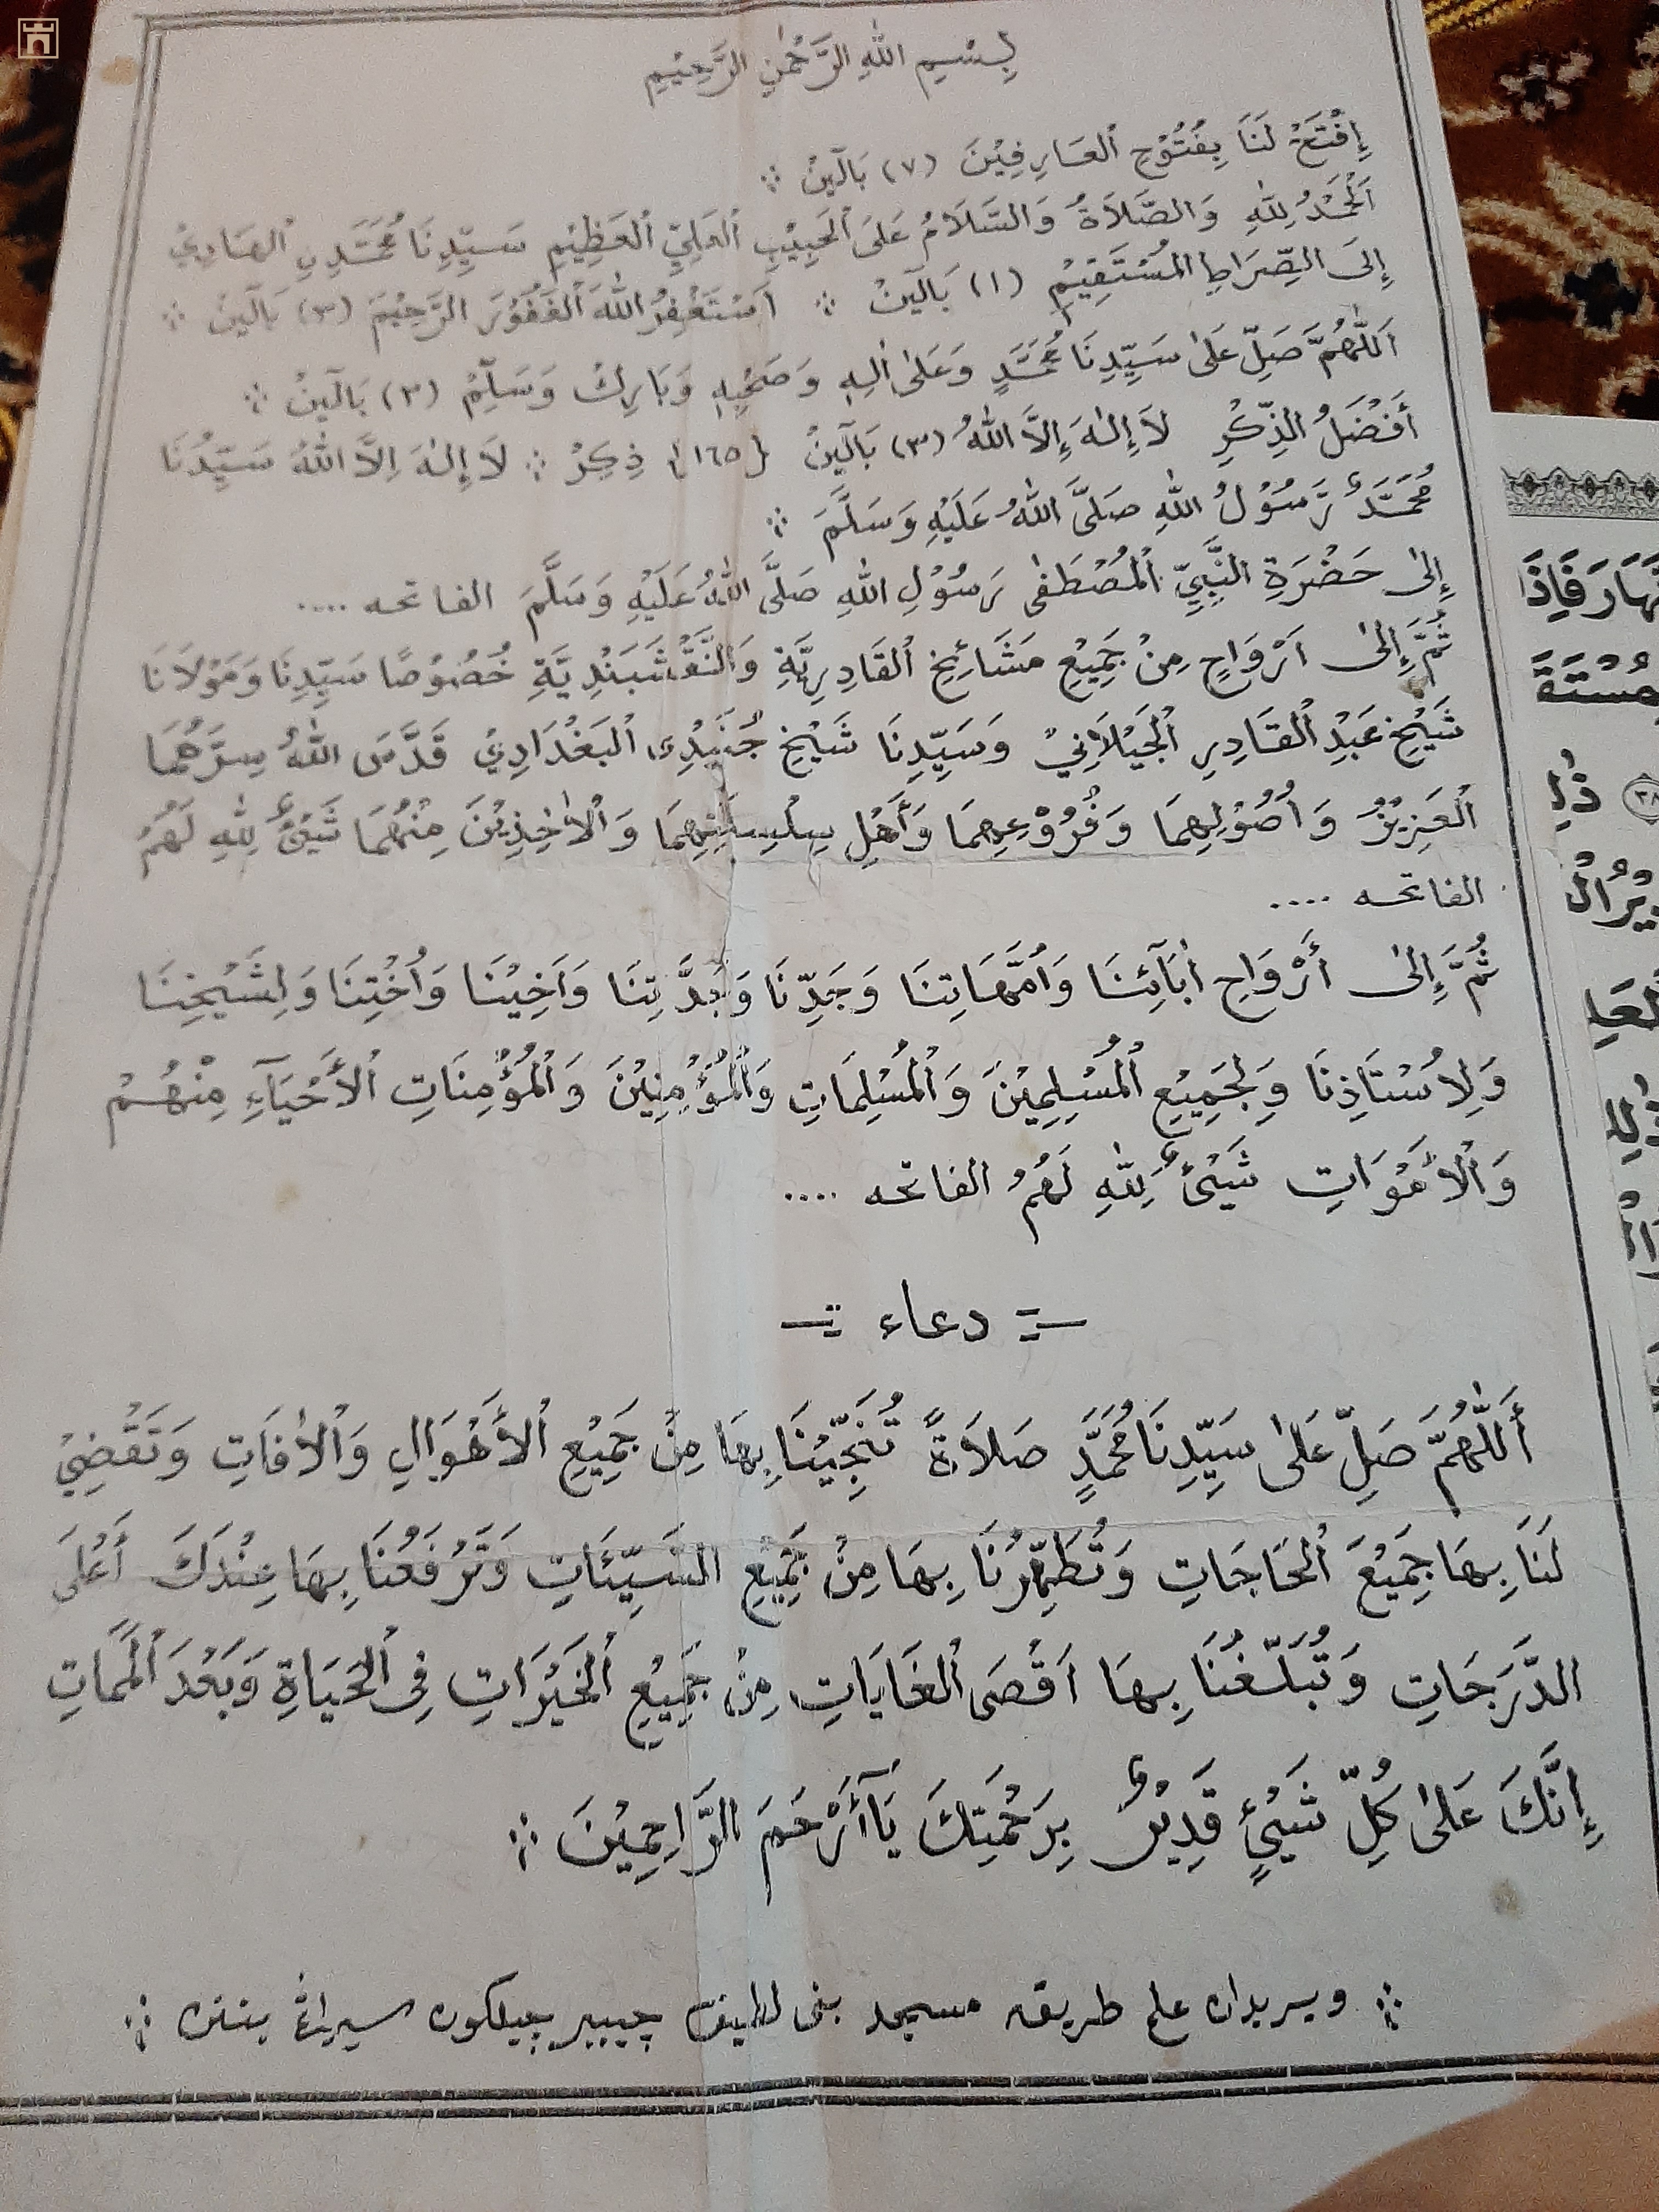 بِسْمِ اللهِ الرَّحْمٰنِ الرَّحِيْمِ
إِفْتَحْ لَنَا بِفُتُوْحِ الْعَارِفِيْنَ (٧) بَالَيْنْ ⁘
اَلْحَمْدُ لِلّٰهِ وَالصَّلَاةُ وَالسَّلَامُ عَلَى الْحَبِيْبِ الْعَلِيِّ الْعَظِيْمِ سَيِّدِنَا مُحَمَّدِنِ الْهَادِيْ
إِلَى الصِّرَاطِ الْمُسْتَقِيْمِ (١) بَالَيْنْ ⁘ اَسْتَغْفِرُ اللهَ الْغَفُوْرَ الرَّحِيْمَ (٣) بَالَيْنْ ⁘
اَللّٰهُمَّ صَلِّ عَلىٰ سَيِّدِنَا مُحَمَّدٍ وَعَلىٰ اٰلِهِ وَصَحْبِهِ وَبَارِكْ وَسَلِّمْ (٣) بَالَيْنْ ⁘
أَفْضَلُ الذِّكْرِ لَا إِلٰهَ إِلَّا اللهُ (٣) بَالَيْنْ {١٦٥} ذِكِرْ ⁘ لَا إِلٰهَ اِلَّا اللهُ سَيِّدُنَا
مُحَمَّدٌ رَّسُوْلُ اللهِ صَلَّى اللهُ عَلَيْهِ وَسَلَّمَ ⁘
إِلىٰ حَضْرَةِ النَّبِيِّ الْمُصْطَفٰى رَسُوْلِ اللهِ صَلَّى اللهُ عَلَيْهِ وَسَلَّمَ الفاتحه ....
ثُمَّ إِلىٰ اَرْوَاحِ مِنْ جَمِيْعِ مَشَائِخِ الْقَادِرِيَّةِ وَالنَّقْشَبَنْدِيَّةِ خُصُوْصًا سَيِّدِنَا وَمَوْلَانَا
شَيْخِ عَبْدِ الْقَادِرِ الْجَيْلَانِيْ وَسَيِّدِنَا شَيْخِ جُنَيْدِى الْبَغْدَادِيْ قَدَّسَ اللهُ سِرَّهُمَا
الْعَزِيْزُ وَاُصُوْلِهِمَا وَفُرُوْعِهِمَا وَأَهْلِ سِلْسِلَتِهِمَا وَالْاٰخِذِيْنَ مِنْهُمَا شَيْئٌ لِلّٰهِ لَهُمْ
الفاتحه ....
ثُمَّ إِلىٰ أَرْوَاحِ اٰبَآئِنَا وَاُمَّهَاتِنَا وَجَدِّنَا وَجَدَّتِنَا وَاَخِيْنَا وَاُخْتِنَا وَلِشَيْخِنَا
وَلِاُسْتَاذِنَا وَلِجَمِيْعِ الْمُسْلِمِيْنَ وَالْمُسْلِمَاتِ وَالْمُؤْمِنِيْنَ وَالْمُؤْمِنَاتِ الْأَحْيَآءِ مِنْهُمْ
وَالْأَمْوَاتِ شَيْئٌ لِلّٰهِ لَهُمْ الفاتحه ....
دعاء
أَللّٰهُمَّ صَلِّ عَلىٰ سَيِّدِنَا مُحَمَّدٍ صَلَاةً تُنْجِّيْنَا بِهَا مِنْ جَمِيْعِ الْأَهْوَالِ وَالْاٰفَاتِ وَتَقْضِيْ
لَنَا بِهَا جَمِيْعَ الْحَاجَاتِ وَتُطَهِّرُنَا بِهَا مِنْ جَمِيْعِ السَّيِّئَاتِ وَتَرْفَعُنَا بِهَا عِنْدَكَ أَعْلَى
الدَّرَجَاتِ وَتُبَلِّغُنَا بِهَا اَقْصَى الْغَايَاتِ مِنْ جَمِيْعِ الْخَيْرَاتِ فِى الْحَيَاةِ وَبَعْدَ الْمَمَاتِ
إِنَّكَ عَلىٰ كُلِّ شَيْئٍ قَدِيْرٌ بِرَحْمَتِكَ يَآأَرْحَمَ الرَّاحِمِيْنَ ⁘
⁘ ويريدان علم طريقه مسجد بنى لطيف چيبير چيلكوڠ سيراڠ بنتن ⁘